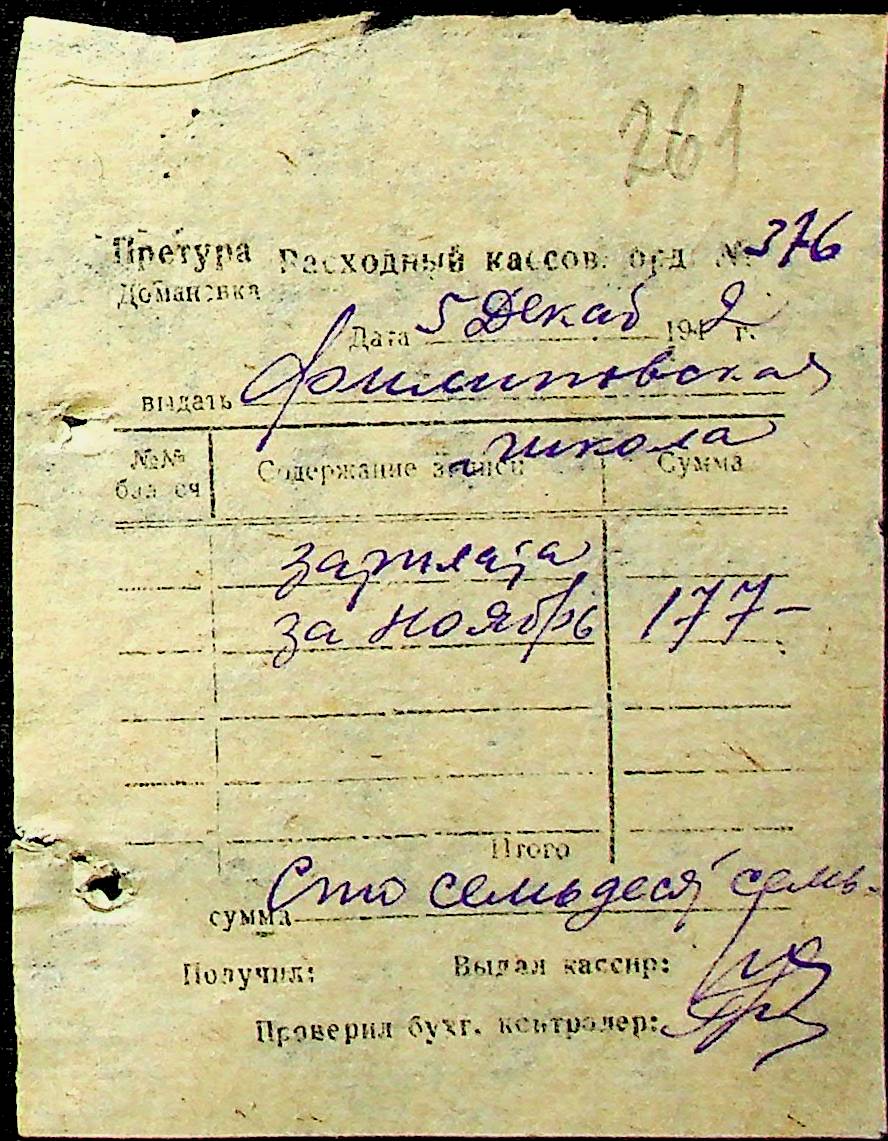 261
Претура Расходный кассов. орд. № 376
Домановка
Дата 5 Декаб 1942 г.
выдать Филиповская
школа
№№ бал сч Содержание записи Сумма
зарплата
за ноябрь 177-
Итого
сумма Сто семьдесят семь-
Получил: Выдал кассир:
Проверил бухг. контролер: